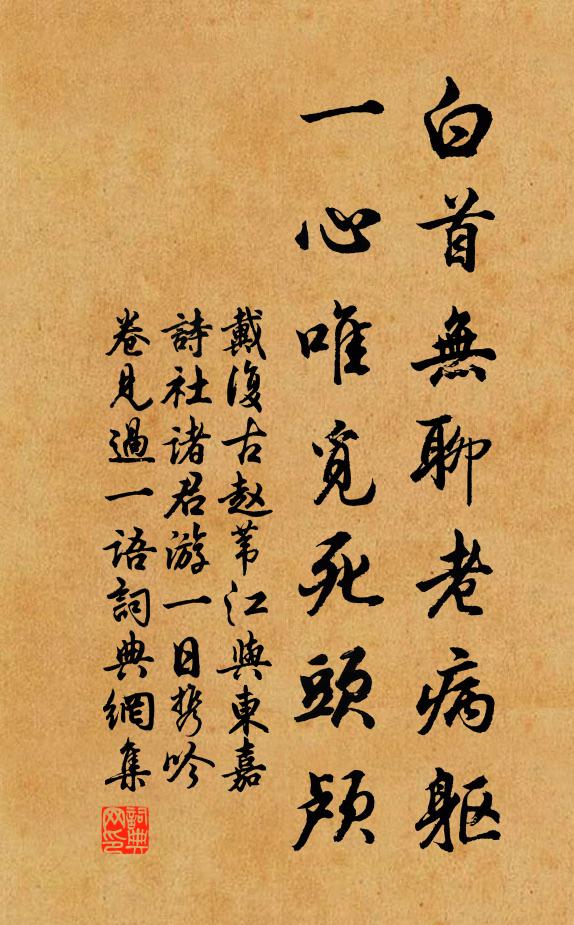 白首無聊老病軀
一心唯覓死頭颅
戴復古赵苇江與東嘉
詩社諸君游一日携吟
卷見過一語詞典網集
詞典
网印